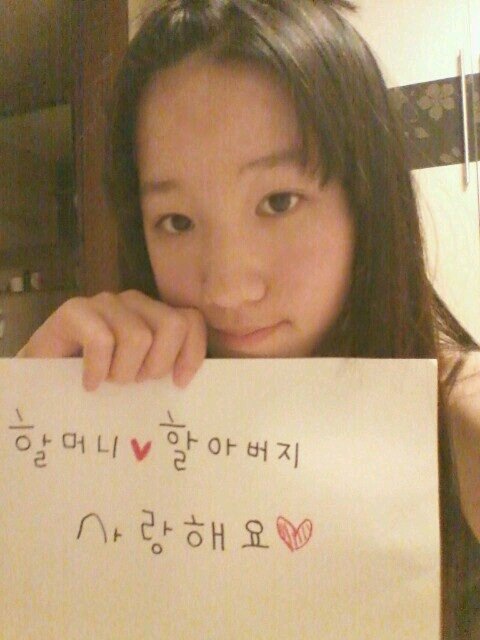 할머니♥할아버지
사랑해요♥